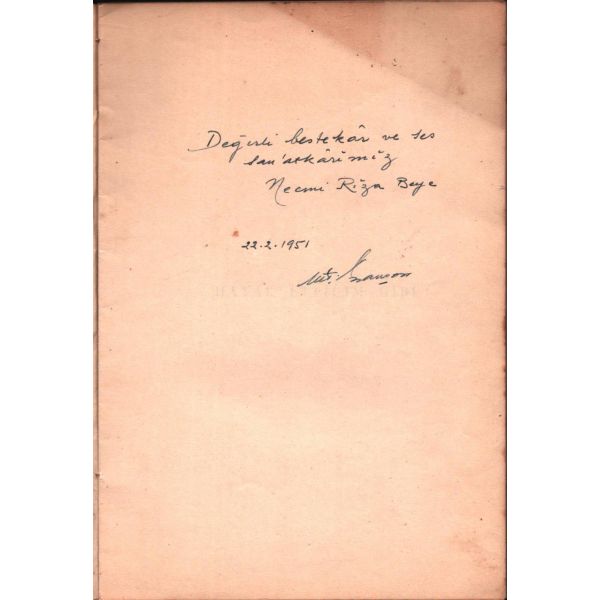 Değerli bestekâr ve ses
san'atkârımız
Necmi Rıza Beye
22.2.1951